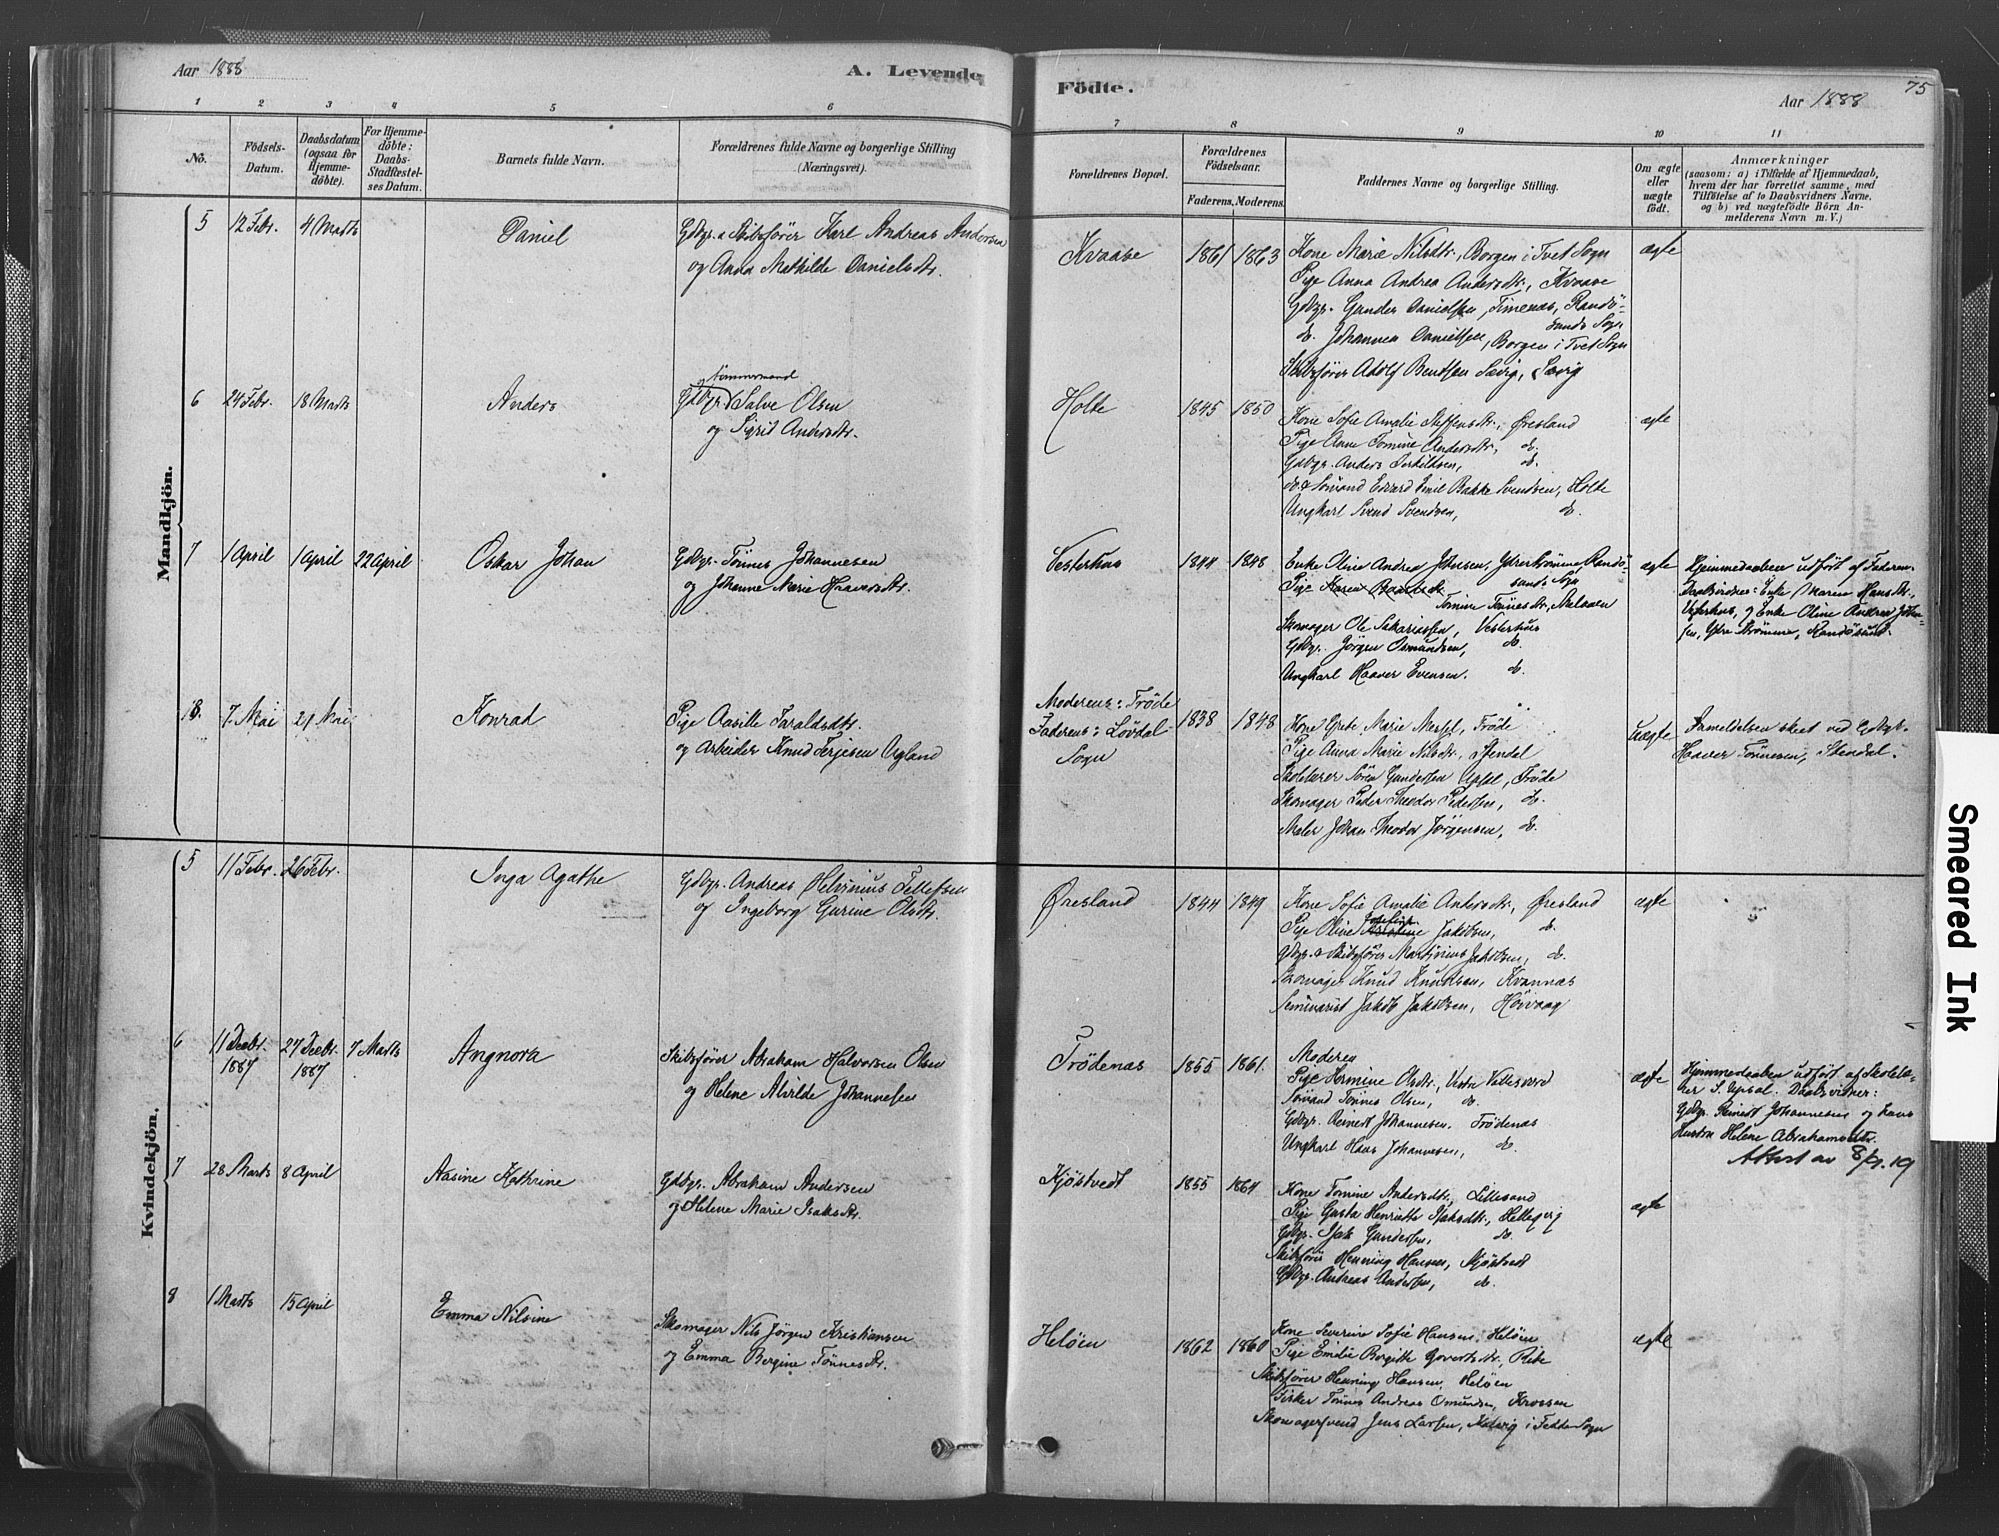 Aar 1888
A. Levende
Födte.
Aar 1888
75
1 2 3 4 5 6 7 8 9 10 11
No.
Födsels-
Datum.
Daabsdatum
(ogsaa for
Hjemme-
döbte).
For Hjemme-
döbte:
Daabs-
Stadfæstel-
ses Datum.
Barnets fulde Navn.
Forældrenes fulde Navne og borgerlige Stilling
(Næringsvei).
Forældrenes Bopæl.
Forældrenes
Födselsaar.
Faderens. Moderens.
Faddernes Navne og borgerlige Stilling.
Om ægte
eller
uægte
födt.
Anmærkninger
(saasom: a) i Tilfælde af Hjemmedaab,
hvem der har forrettet samme, med
Tilföielse af to Daabsvidners Navne,
og b) ved uægtefödte Börn An-
melderens Navn m. V.)
Mandkjön.
5 12 Febr. 4 Marts Daniel
Gdbgr. & Skibsfører Karl Andreas Andersen
og Anna Mathilde Danielsdtr.
Kvaase 1861 1863
Kone Marie Nilsdtr., Borgen i Tvet Sogn
Pige Anna Andrea Andersdtr., Kvaase
Gdbgr. Gunder Danielsen, Timenes, Randö-
sunds Sogn
do. Johannes Danielsen, Borgen i Tvet Sogn
Skibsfører Adolf Bentsen Sævig, Sævig
ægte
6 24 Febr. 18 Marts Anders
Tømmermand
Gdbgr. Salve Olsen
og Sigrid Andersdtr.
Holte 1845 1850
Kone Sofie Amalie Steffensdtr., Øresland
Pige Anne Tomine Andersdtr., do.
Gdbgr. Anders Terkildsen, do.
do. & Sømand Edvard Emil Bakke Svendsen, Holte
Ungkarl Svend Svendsen, do.
ægte
7 1 April 1 April 22 April Oskar Johan
Gdbgr. Tönnes Johannesen
og Johanne Marie Haaversdtr.
Vesterhus 1844 1848
Enke Oline Andrea Johnsen, Ydre Strömme, Randö-
sunds Sogn
Pige Karen
Tomine Tönnesdtr.,
Skomager Ole Sakariassen, Vesterhus
Gdbgr. Jörgen Osmundsen, do.
Ungkarl Haaver Evensen. do.
ægte
Hjemmedaaben udført af Faderen.
Daabsvidner: Enke Maren Hansdtr.,
Vesterhus, og Enke Oline Andrea John-
sen, Ydre Strömme, Randösund.
8. 7 Mai 21 Mai Konrad
Pige Aasille Taraldsdtr.
og Arbeider Knud Terjesen Ugland
Moderens: Tröde
Faderens: Lövdal
Sogn
1838 1848
Kone Grete Marie Messel, Tröde
Pige Anna Marie Nilsdtr., Stendal
Skolelærer Sören Gundersen Upsal, Tröde
Skomager Peder Theodor Pedersen, do.
Maler Johan Theodor Jörgensen, do.
Uægte
Anmeldelsen skeet ved Gdbgr.
Haaver Tönnesen, Stendal.
Kvindekjön.
5 11 Febr. 26 Febr. Inga Agathe
Gdbgr. Andreas Helvinius Tellefsen
og Ingeborg Gurine Olsdtr.
Øresland 1844 1849
Kone Sofie Amalie Andersdtr., Øresland
Josefine
Pige Oline Jakobsen, do.
Gdbgr. & Skibsfører Martinius Jakobsen, do.
Skomager Knud Knudsen, Kvannes
Seminarist Jakob Jakobsen, Hövaag
ægte
6 11 Decbr.
1887
27 Decbr.
1887
7 Marts Angnora
Skibsfører Abraham Halvorsen Olsen
og Helene Alvilde Johannesen
Trödenas 1855 1861.
Moderen
Pige Hermine Olsdtr., Vestre Vallesverd
Sömand Tönnes Olsen, do.
Gdbgr. Reinert Johannesen. Trödenas
Ungkarl Hans Johannesen, do.
ægte
Hjemmedaaben udført af Skolelæ-
rer S. Upsal. Daabsvidner:
Gdbgr. Reinert Johannesen og hans
Hustru Helene Abrahamsdtr.
Attest av 8/9.19
7 28 Marts 8 April Aasine Kathrine
Gdbgr. Abraham Andersen
og Helene Marie Isaksdtr.
Kjöstvedt 1855 1864
Kone Tomine Andersdtr., Lillesand
Pige Gusta Henriette Isaksdtr., Hellegerg
Gdbgr. Isak Gundersen, do.
Skibsfører Henning Hansen, Kjöstvedt
Gdbgr. Andreas Andersen, do.
ægte
8 1 Marts 15 April Emma Nilsine
Skomager Nils Jörgen Kristiansen
og Emma Bergine Tönnesdtr.
Helöen 1862 1860
Kone Severine Sofie Hansen, Helöen
Pige Emilie Birgitte Govertsdtr.,
Skibsfører Henning Hansen, Helöen
Fisker Tönnes Andreas Omundsen, Krossen
Skomagersvend Jens Larsen, i Sogn
ægte
Smeared Ink